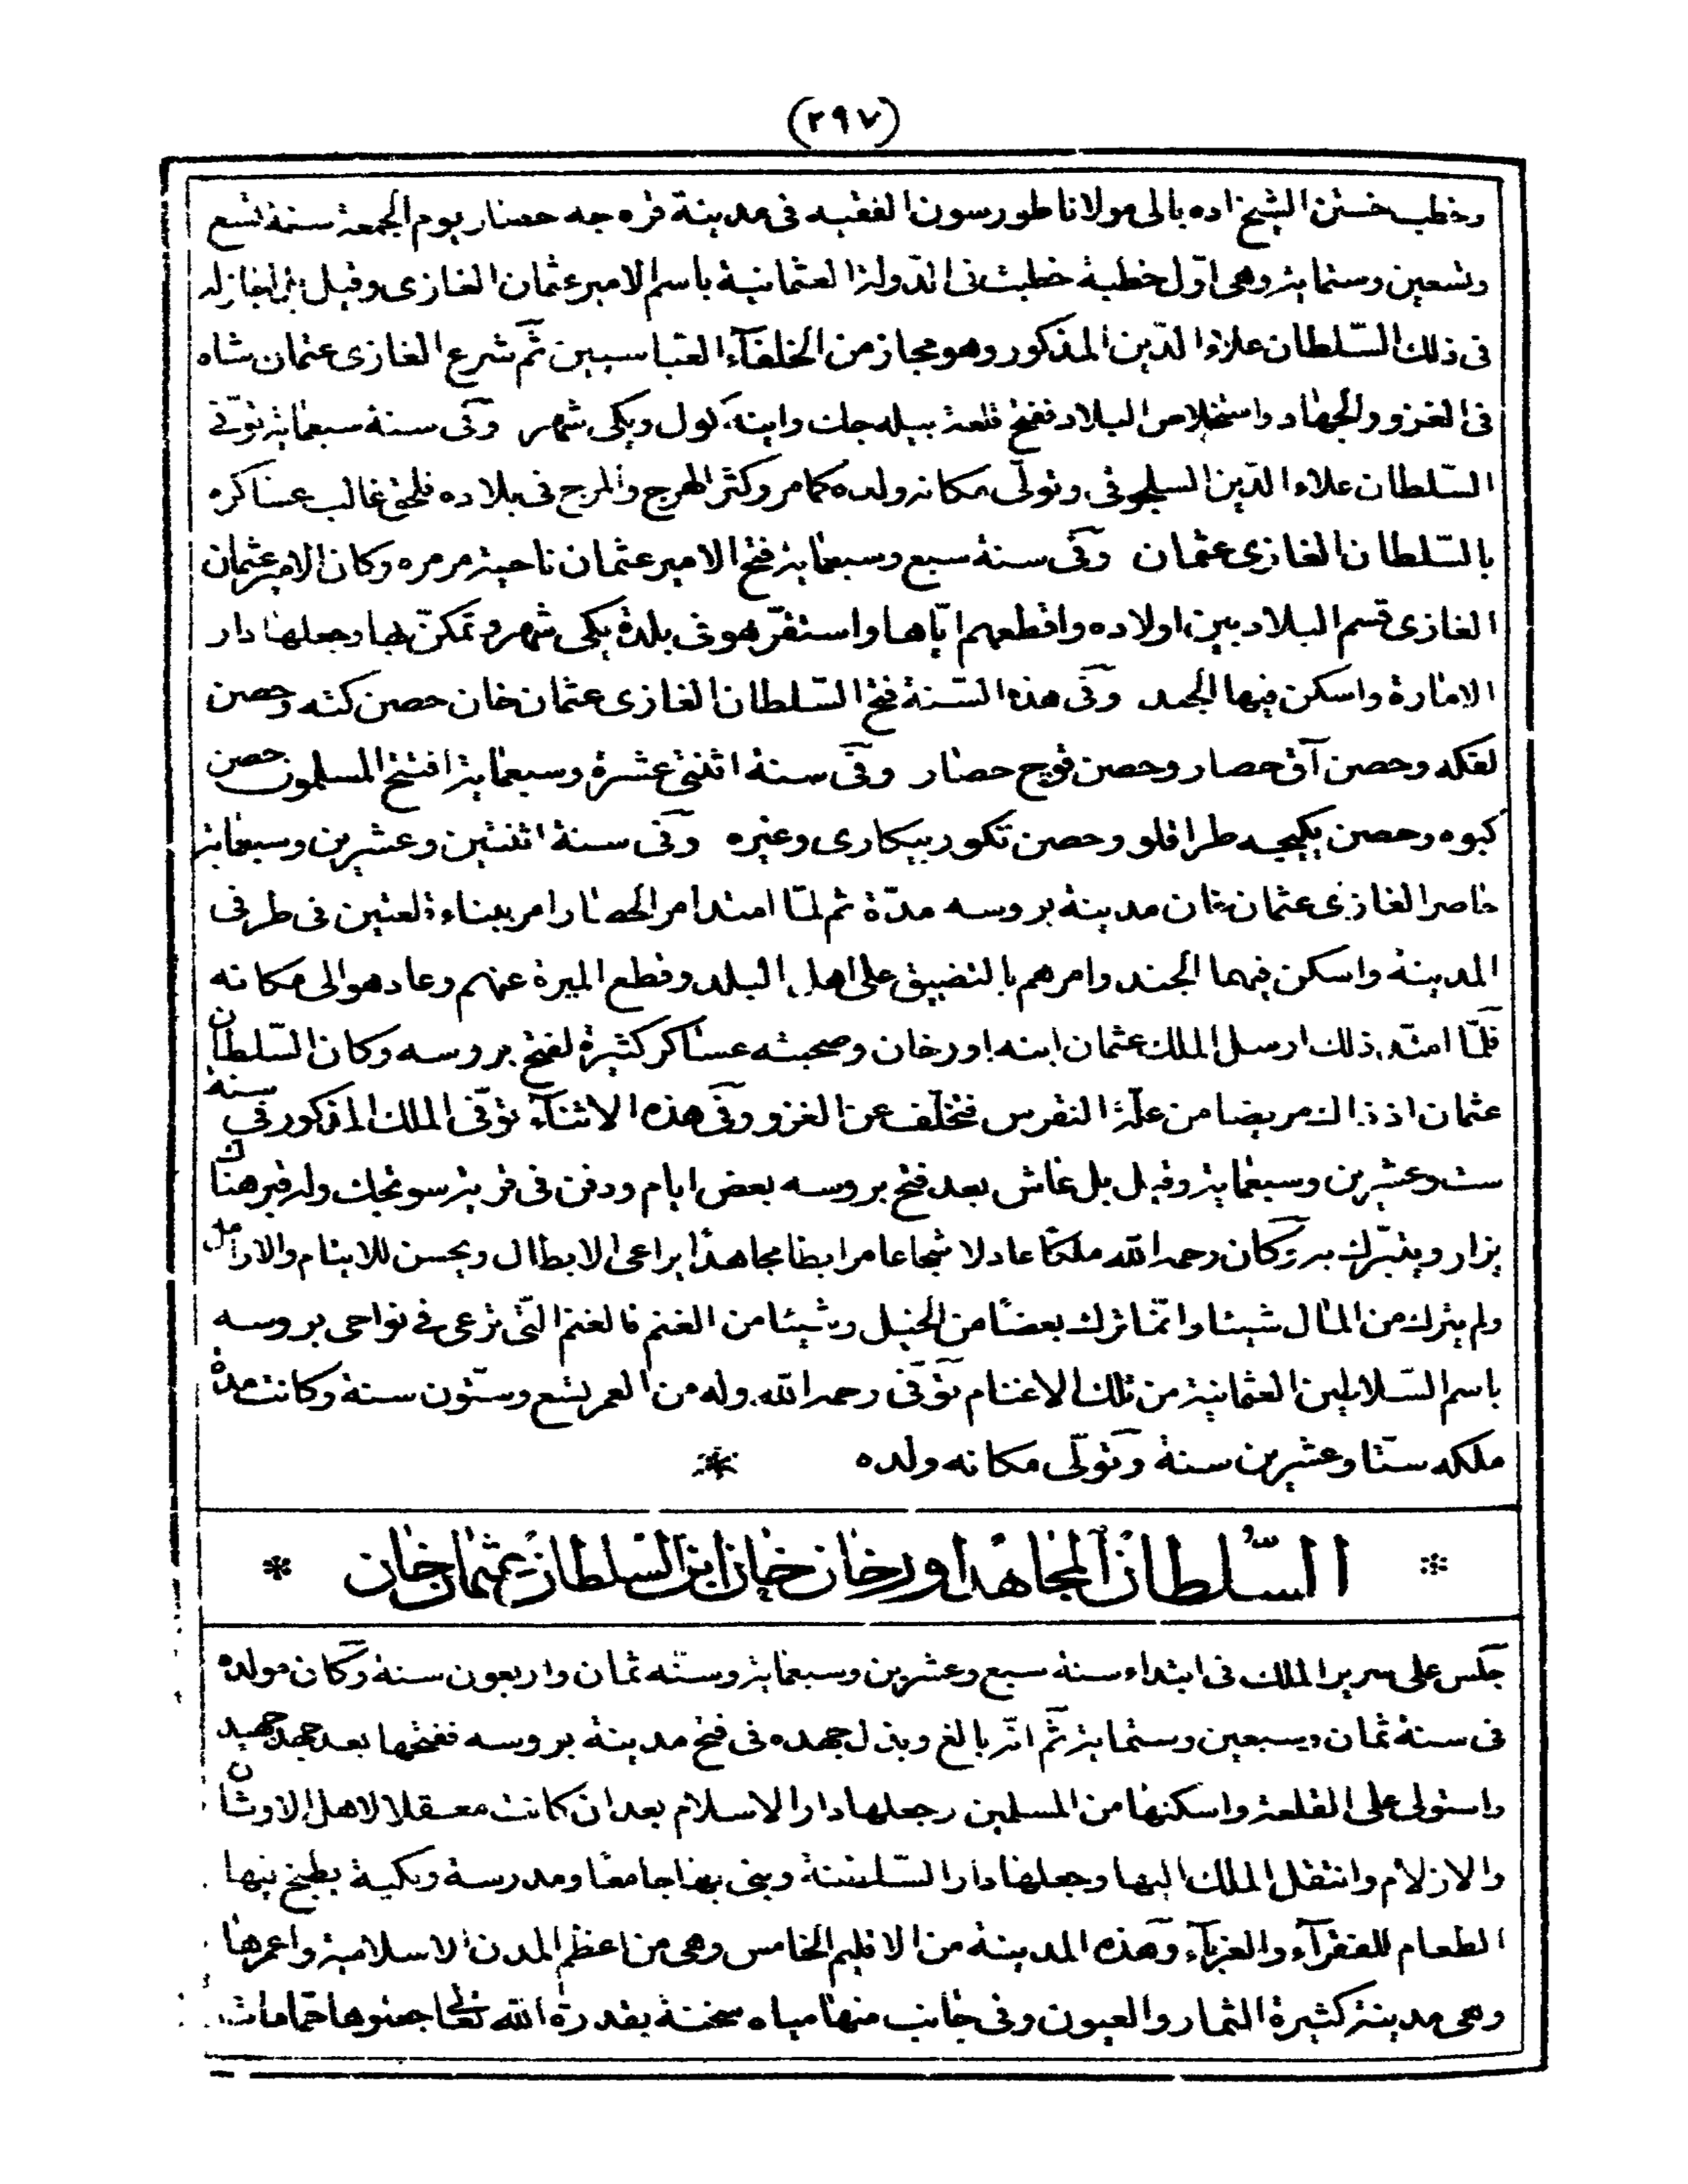 (٢٩٧)
وخطب ختن الشيخ اده بالى مولانا طورسون الفقيه فى مدينة قره جه حصار يوم الجمعة سنة تسع
وتسعين وستماية وهى اوّل خطبة خطبت فى الدّولة العثمانية باسم الامير عثمان الغازى وقيل اجازله
فى ذلك السّلطان علاء الدّين المذكور وهو مجاز من الخلفآء العبّاسيين ثمّ شرع الغازى عثمان شاه
فى الغزو والجهاد واستخلاص البلاد ففتح قلعة بيله جك واينه كول ويكى شهر وفى سنة سبعماية توفّى
السّلطان علاء الدّين السلجوقى وتولّى مكانه ولده كمامر وكثر الهرج والمرج فى بلاده فلحق غالب عساكره
بالسّلطان الغازى عثمان وفى سنة سبع وسبعماية فتح الامير عثمان ناحية مرمره وكان الامير عثمان
الغازى قسم البلاد بين اولاده واقطعهم ايّاها واستقرّ هو فى بلدة يكى شهر وتمكّن بها وجعلها دار
الامارة واسكن فيها الجند وفى هذه السّنة فتح السّلطان الغازى عثمان خان حصن كته وحصن
لفكه وحصن آق حصار وحصن قوج حصار وفى سنة اثنتى عشرة وسبعماية افتتح المسلمون حصن
كبوه وحصن يكيجه طراقلو وحصن تكور بيكارى وغيره وفى سنة اثنتين وعشرين وسبعماية
حاصر الغازى عثمان خان مدينة بروسه مدّة ثم لمّا امتد امر الحصار امر ببناء قلعتين فى طرفى
المدينة واسكن فيهما الجند وامرهم بالتضييق على اهل البلد وقطع الميرة عنهم وعاد هو الى مكانه
فلمّا امتد ذلك ارسل الملك عثمان ابنه اورخان وصحبته عساكر كثيرة لفتح بروسه وكان السّلطان
عثمان اذ ذاك مريضا من علّة النقرس فتخلّف عن الغزو وفى هذه الاثنآء توفّى الملك المذكور فى سنة
ست وعشرين وسبعماية وقيل بل عاش بعد فتح بروسه بعض ايام ودفن فى قرية سو نجك وله قبر هناك
يزار ويتبّرك به وكان رحمه الله ملكًا عادلا شجاعا مرابطا مجاهدًا يراعى الابطال ويحسن للايتام والارامل
ولم يترك من المال شيئا وانّما ترك بعضًا من الخيل وشيئا من الغنم فالغنم الّتى ترعى فى نواحى بروسه
باسم السّلاطين العثمانية من تلك الاغنام توفّى رحمه الله وله من العمر تسع وستّون سنة وكانت مدة
ملكه ستّا وعشرين سنة وتولّى مكانه ولده
السّلطان المجاهد اورخان خان ابن السلطان عثمان خان
جلس على سرير الملك فى ابتداء سنة سبع وعشرين وسبعماية وسنّه ثمان واربعون سنة وكان مولده
فى سنة ثمان وسبعين وستماية ثمّ انّه بالغ وبذل جهده فى فتح مدينة بروسه ففتحها بعد جهد جهيد
واستولى على القلعة واسكنها من المسلمين وجعلها دار الاسلام بعد ان كانت معقلا لاهل الاوثان
والازلام وانتقل الملك اليها وجعلها دار السّلطنة وبنى بها جامعًا ومدرسة وتكية يطبخ فيها
الطعام للفقرآء والغربآء وهذه المدينة من الاقليم الخامس وهى من اعظم المدن الاسلامية واعمرها
وهى مدينة كثيرة الثمار والعيون وفى جانب منها مياه سخنة بقدرة الله تعالى جعلوها حمّامات